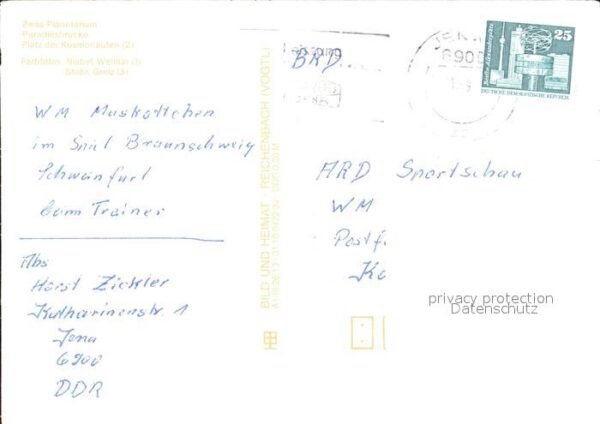 Zeiss Planetarium
Paradiesbrücke
Platz der Kosmonauten (2)
Farbfotos: Nisbet, Weimar (1)
Stabn, Greiz (3)
WM Muskottchen
im Spiel Braunschweig
Schweinfurt
beim Trainer
Abs
Horst Zickler
Katharinenstr. 1
Jena
6900
DDR
BILD UND HEIMAT · REICHENBACH (VOGTL)
BRD
JENA
690
25
DEUTSCHE DEMOKRATISCHE REPUBLIK
ARD Sportschau
WM
Postf.
Kö
privacy protection
Datenschutz